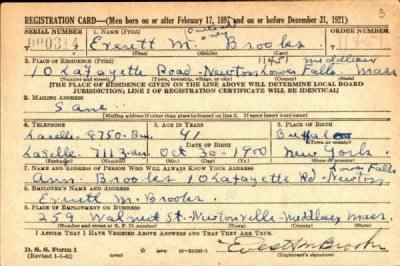 3
REGISTRATION CARD—(Men born on or after February 17, 1897 and on or before December 31, 1921)
SERIAL NUMBER 1. NAME (Print) ORDER NUMBER
Everett M. Brooks
(First) (Middle) (Last)
2. PLACE OF RESIDENCE (Print) Middlesex
10 Lafayette Road - Newton Lower Falls Mass
(Number and street) (Town, township, village, or city) (County) (State)
[THE PLACE OF RESIDENCE GIVEN ON THE LINE ABOVE WILL DETERMINE LOCAL BOARD
JURISDICTION; LINE 2 OF REGISTRATION CERTIFICATE WILL BE IDENTICAL]
3. MAILING ADDRESS
Same
[Mailing address if other than place indicated on line 2. If same insert word same]
4. TELEPHONE 5. AGE IN YEARS 6. PLACE OF BIRTH
Lasell - 8750 - Bu. 41 Buffalo
DATE OF BIRTH (Town or county)
Lasell 7113 Oct 30 - 1900 New York
(Exchange) (Number) (Mo.) (Day) (Yr.) (State or country)
7. NAME AND ADDRESS OF PERSON WHO WILL ALWAYS KNOW YOUR ADDRESS Lower Falls
Ann Brooks 10 Lafayette Rd - Newton
8. EMPLOYER'S NAME AND ADDRESS
Everett M. Brooks
9. PLACE OF EMPLOYMENT OR BUSINESS
259 Walnut St - Newtonville Middlesex Mass.
(Number and street or R. F. D. number) (Town) (County) (State)
I AFFIRM THAT I HAVE VERIFIED ABOVE ANSWERS AND THAT THEY ARE TRUE.
D. S. S. Form 1
(Revised 1-1-42) (over)
Everett M Brooks
(Registrant's signature)